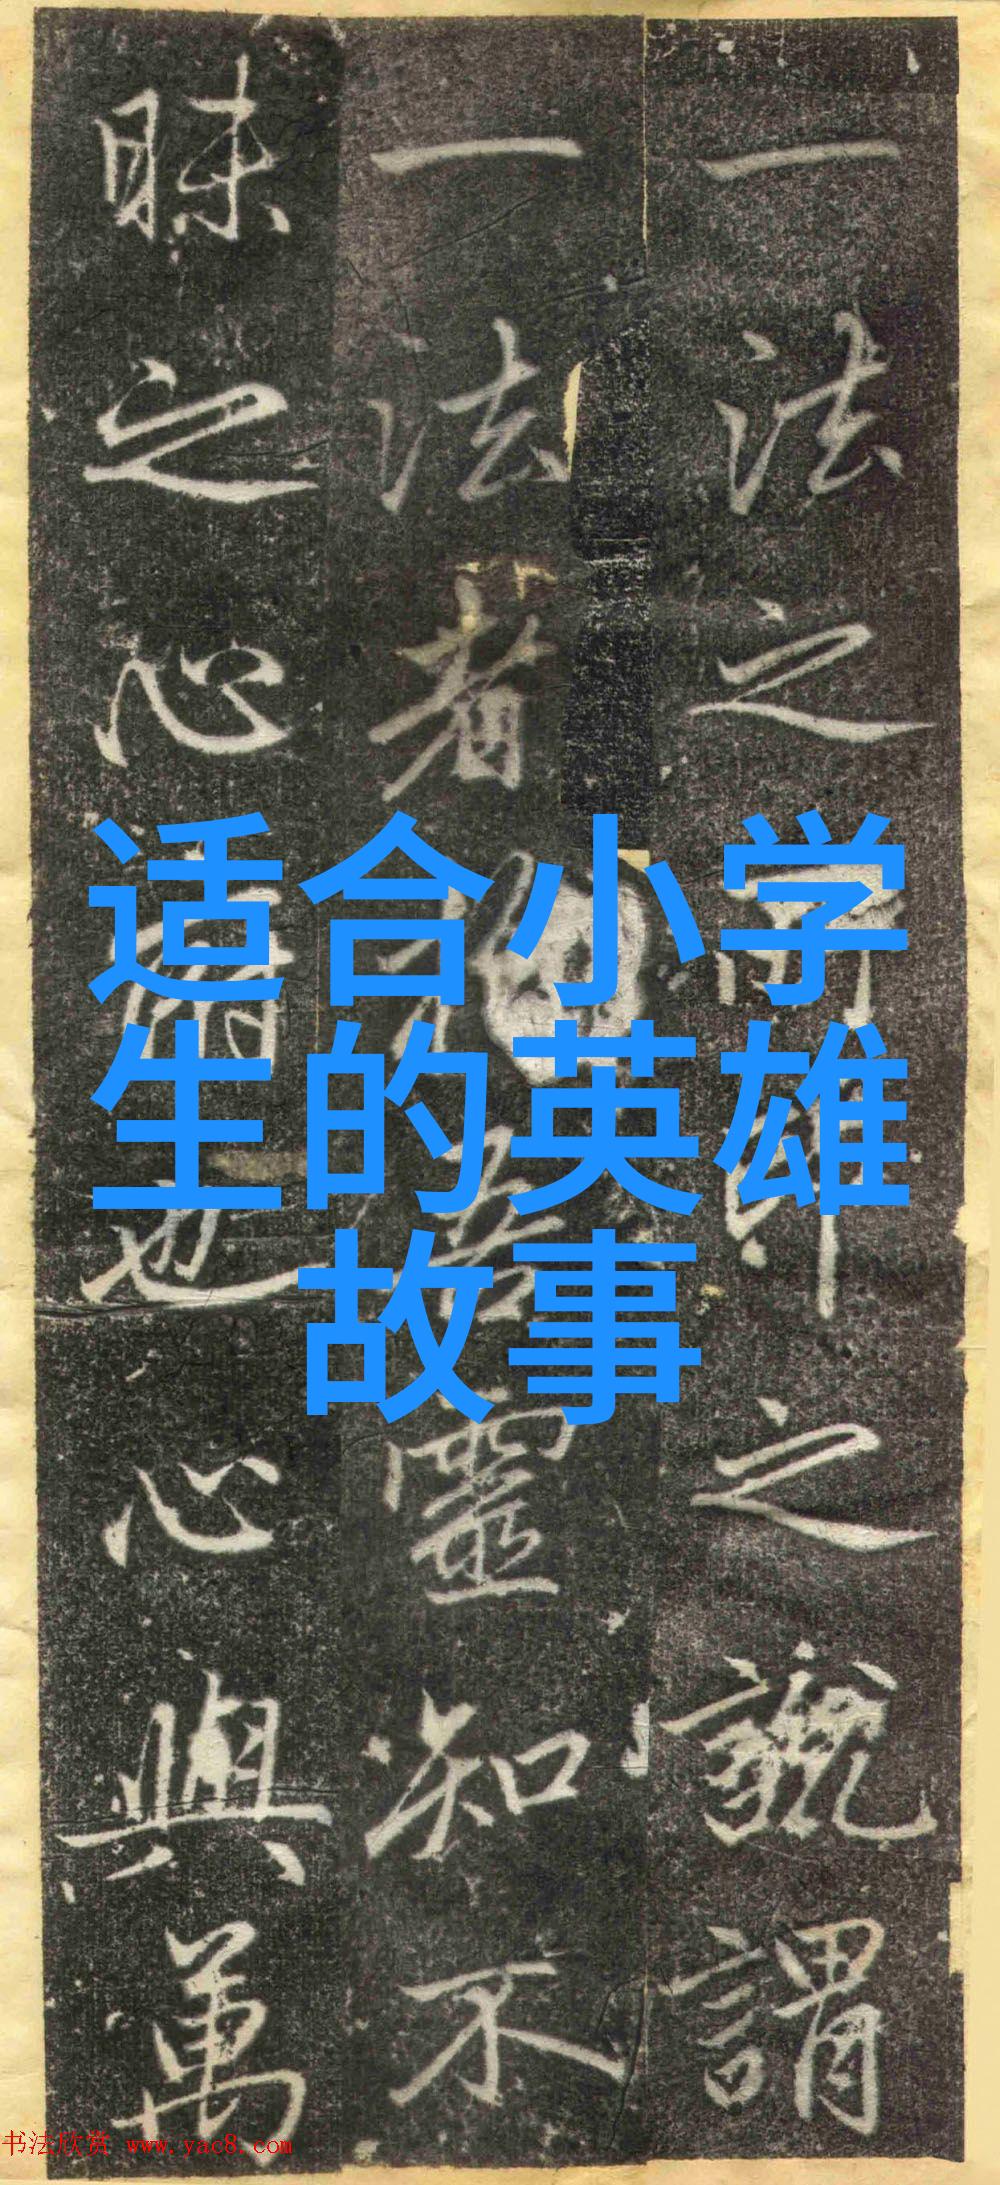 一法之
之號謂
一法者
靈知不
昧之心
也心與萬
适合小学
生的英雄
故事
书法欣赏 www.yac8.com